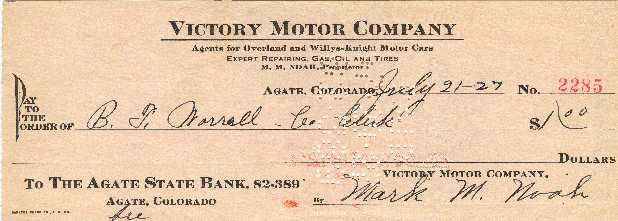 VICTORY MOTOR COMPANY
Agents for Overland and Willys-Knight Motor Cars
EXPERT REPAIRING, GAS, OIL AND TIRES
M. M. NOAH, Proprietor
AGATE, COLORADO, July 21-27 NO. 2285
PAY TO THE ORDER OF B. F. Worrall Co Clerk $1.00
DOLLARS
TO THE AGATE STATE BANK, 82-389
AGATE, COLORADO
VICTORY MOTOR COMPANY,
By Mark M. Noah